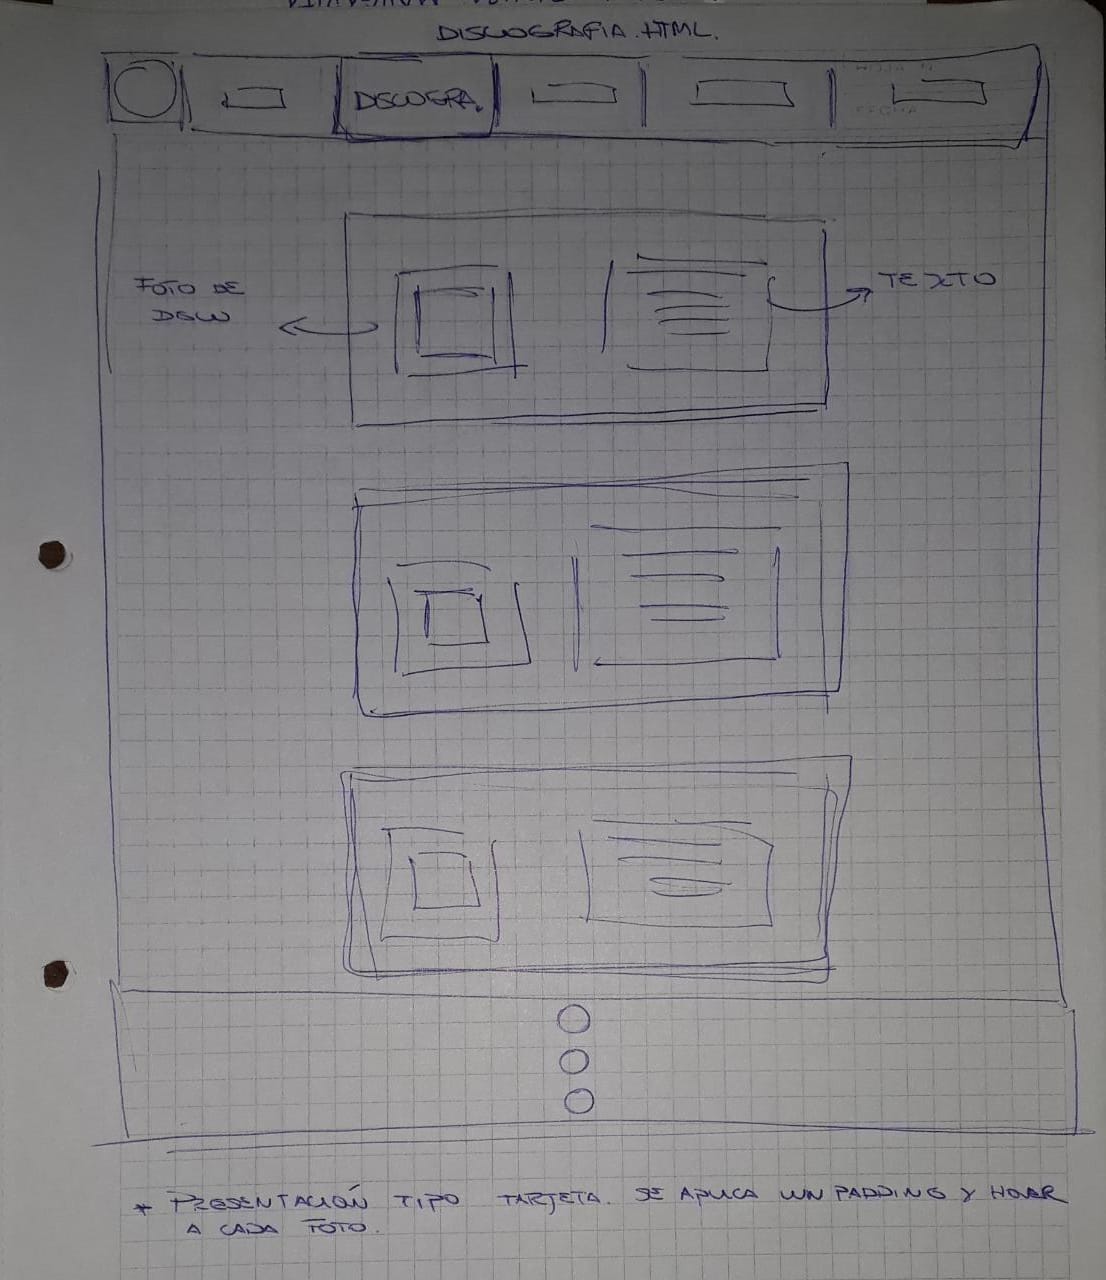 DISCOGRAFIA.HTML.
DISCOGRA.
FOTO DE
DISCO
TEXTO
* PRESENTACIÓN TIPO TARJETA. SE APLICA UN PADDING Y HOVER
A CADA FOTO.